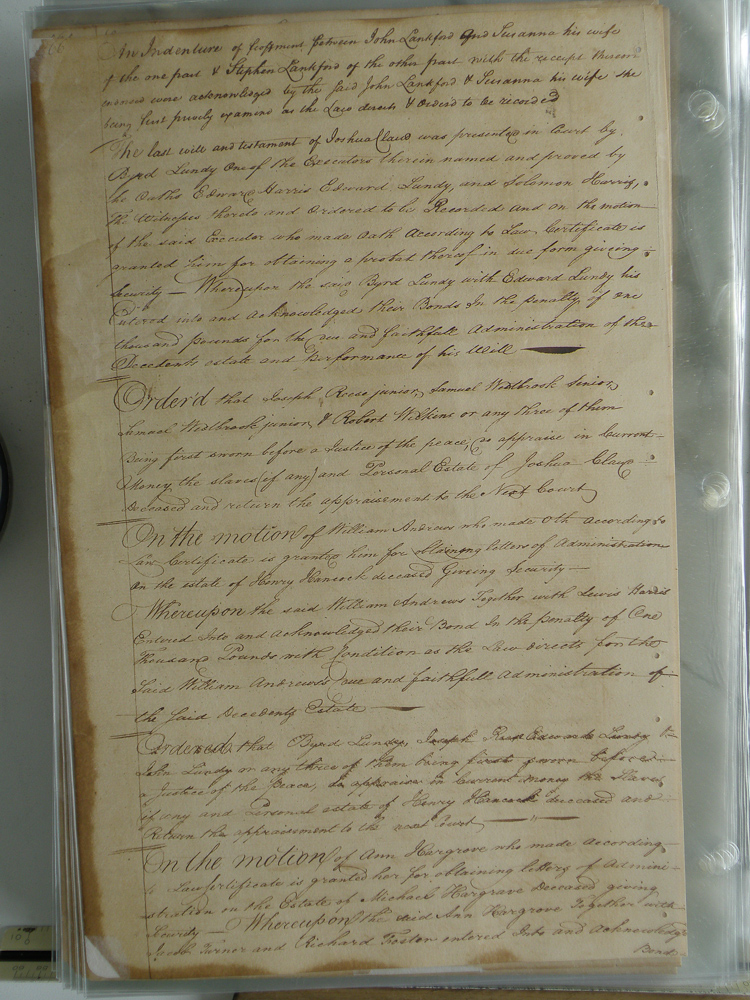 An Indenture of feoffment between John Lankford And Susanna his wife
of the one part & Stephen Lankford of the other part with the receipt thereon
were acknowledged by the said John Lankford & Susanna his wife she
being first privily examined as the Law directs & Orderd to be recorded
The last will and testament of Joshua Claud was presented in Court by
Byrd Lundy One of the Executors therein named and proved by
the Oaths Edward Harris Edward Lundy, and Solomon Harris,
the Witnesses thereto and Ordered to be Recorded and on the motion
of the said Executor who made Oath According to Law Certificate is
granted him for obtaining a probat thereof in due form giveing
Security — Whereupon the said Byrd Lundy with Edward Lundy his
Entered into and Acknowledged their Bonds In the penalty of one
thousand pounds for the due and faithfull Administration of the
Decedents estate and Performance of his Will —
Order'd that Joseph Reese junior, Samuel Westbrook Senior,
Samuel Westbrook junior, & Robert Wilkins or any three of them
Being first sworn before a Justice of the peace, do appraise in Current
Money the slaves (if any) and Personal Estate of Joshua Claud
Deceased and return the appraisement to the Next Court
On the motion of William Andrews who made Oth according to
Law Certificate is granted him for obtaining letters of Administration
on the estate of Henry Hancock deceased Giveing Security —
Whereupon the said William Andrews Together with Lewis Harris
Entered Into and Acknowledged their Bond In the penalty of One
Thousand Pounds with Condition as the Law directs for the
Said William Andrews's due and faithfull administration of
the said Decedents Estate —
Ordered that Byrd Lundy, Joseph Edward Lundy &
John Lundy or any three of them being first sworn before
a Justice of the peace, do appraise in Current money the Slaves
if any and Personal estate of Henry Hancock deceased and
Return the appraisement to the next Court
On the motion of Ann Hargrove who made According
to Law Certificate is granted her for obtaining letters of Admini-
stration on the Estate of Michael Hargrave Deceased giving
Security — Whereupon the said Ann Hargrove Together with
Jacob Turner and Richard Foster entered Into and Acknowledg'd
Bond